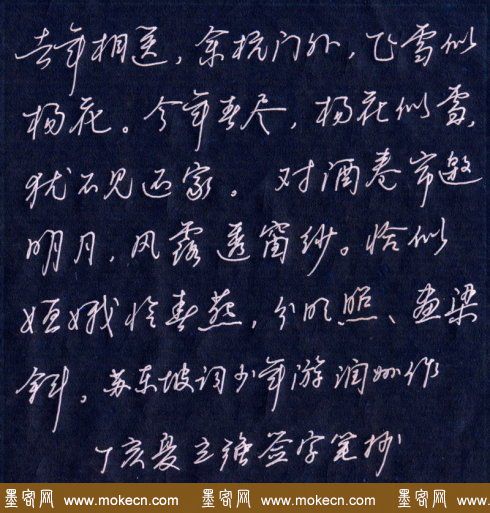 去年相送，余杭门外，飞雪似
杨花。今年春尽，杨花似雪，
犹不见还家。对酒卷帘邀
明月，风露透窗纱。恰似
姮娥怜春燕，分明照、画梁
斜。苏东坡词少年游润州作
丁亥夏立强签字笔抄
墨客网 www.mokecn.com 墨客网 www.mokecn.com 墨客网 www.mokecn.com 墨客网 www